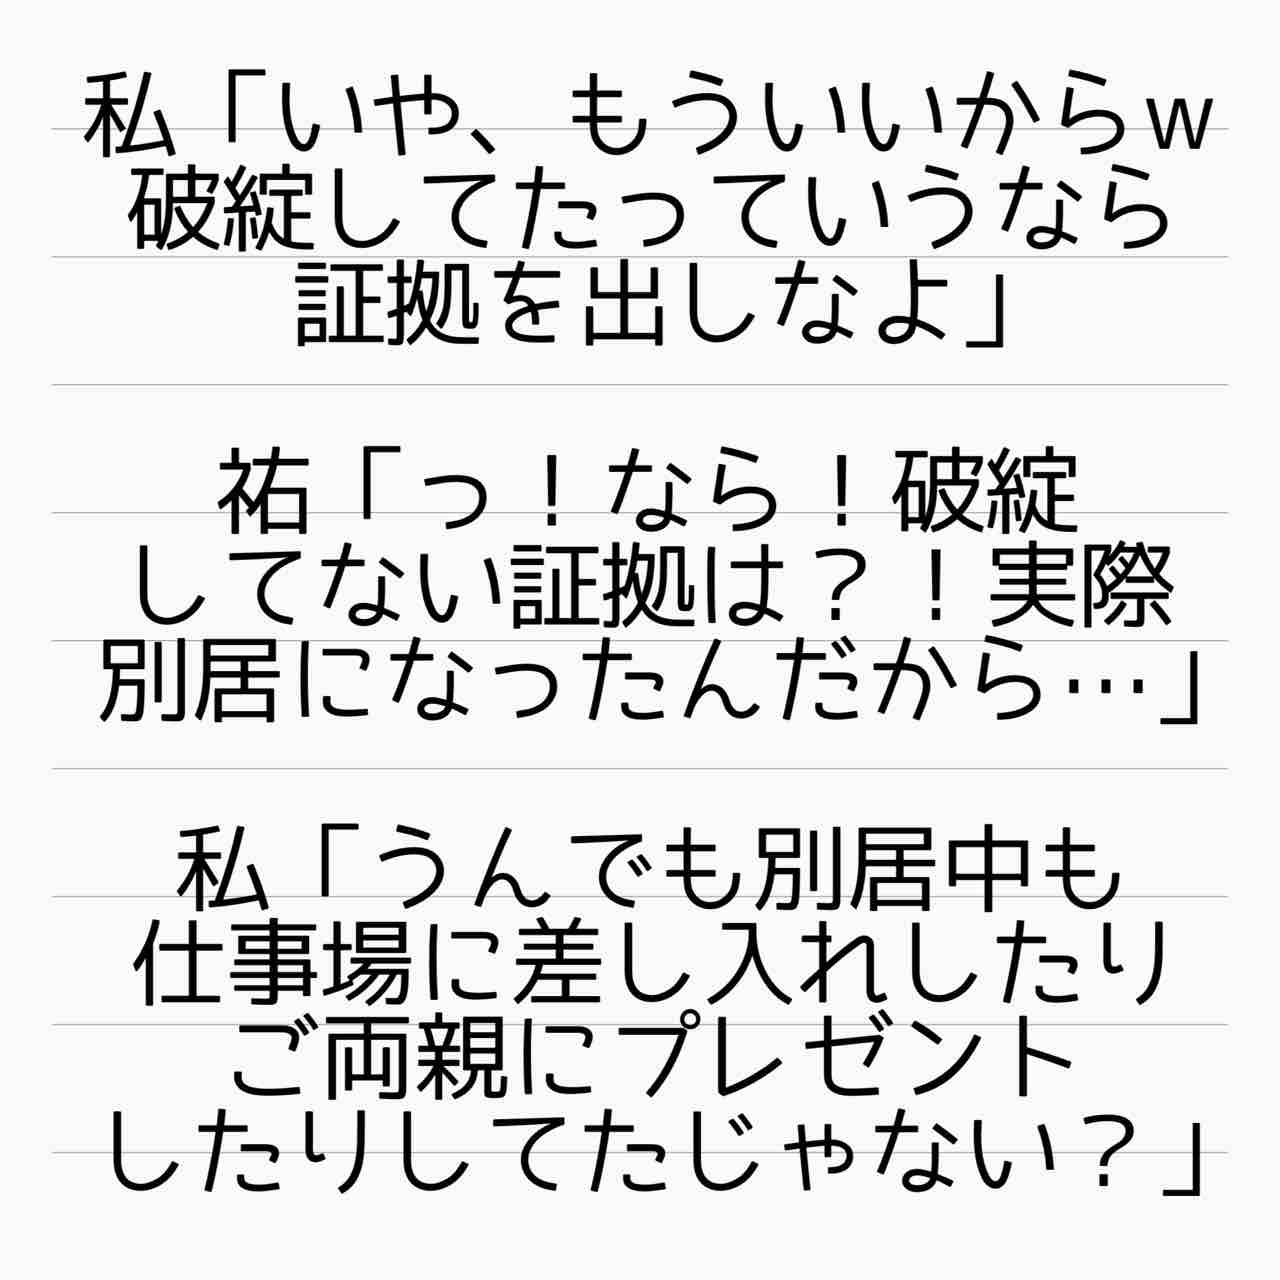 私「いや、もういいからw
破綻してたっていうなら
証拠を出しなよ」
祐「っ！なら！破綻
してない証拠は？！実際
別居になったんだから…」
私「うんでも別居中も
仕事場に差し入れしたり
ご両親にプレゼント
したりしてたじゃない？」